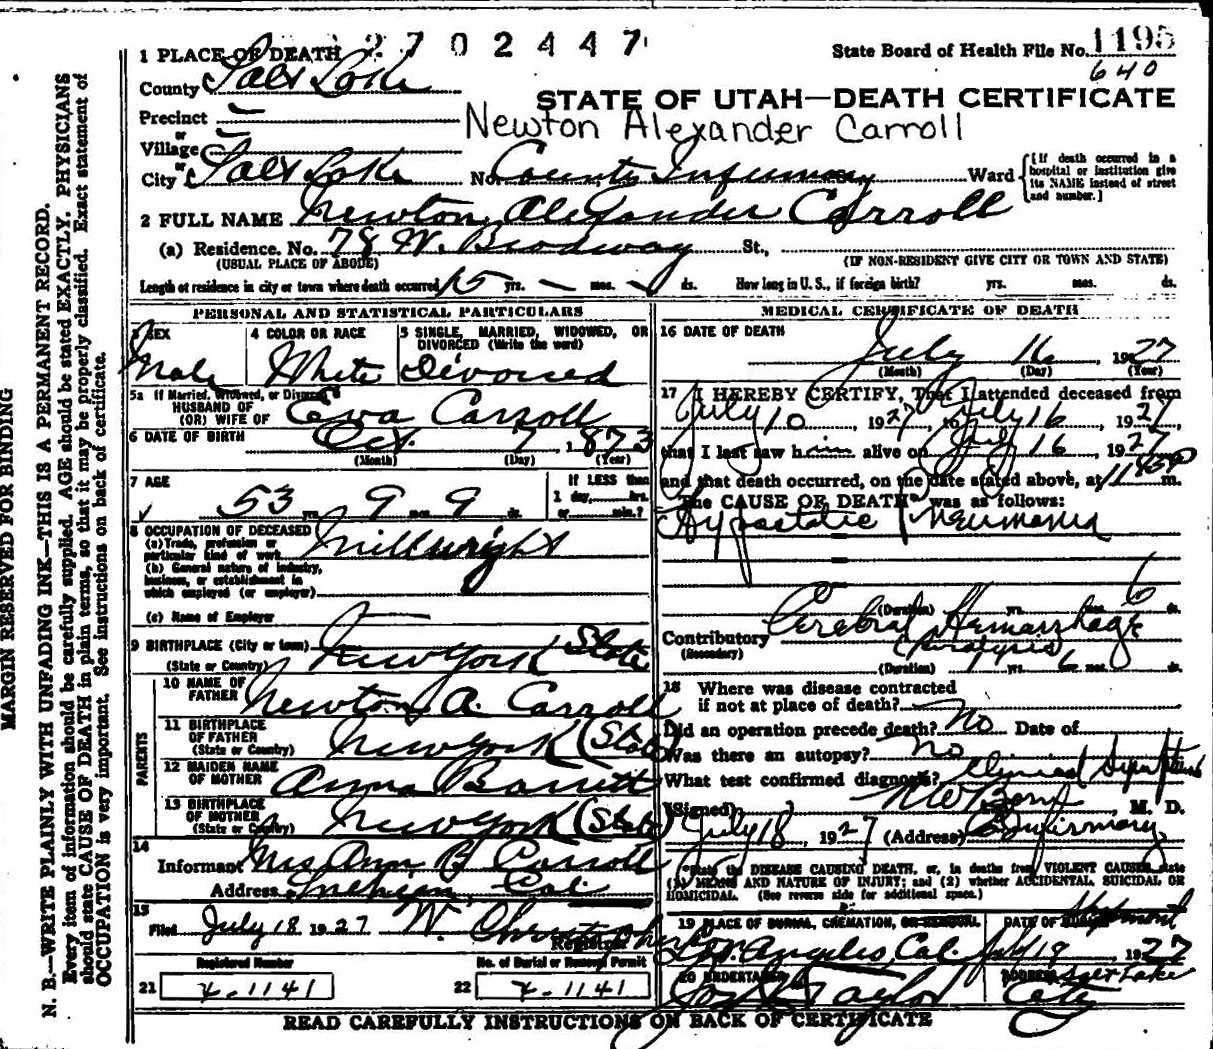 MARGIN RESERVED FOR BINDING
N. B.—WRITE PLAINLY WITH UNFADING INK—THIS IS A PERMANENT RECORD.
Every item of information should be carefully supplied. AGE should be stated EXACTLY. PHYSICIANS
should state CAUSE OF DEATH in plain terms, so that it may be properly classified. Exact statement of
OCCUPATION is very important. See instructions on back of certificate.
1 PLACE OF DEATH 2702447
State Board of Health File No. 1195
640
County Salt Lake
STATE OF UTAH—DEATH CERTIFICATE
Precinct —
Newton Alexander Carroll
or
Village —
or
City Salt Lake No. County Infirmary Ward
[If death occurred in a hospital or institution give its NAME instead of street and number.]
2 FULL NAME Newton Alexander Carroll
(a) Residence. No. 78 W. Broadway St.,
(USUAL PLACE OF ABODE) (IF NON-RESIDENT GIVE CITY OR TOWN AND STATE)
Length of residence in city or town where death occurred 15 yrs. — mos. — ds. How long in U. S., if foreign birth? yrs. mos. ds.
PERSONAL AND STATISTICAL PARTICULARS
3 SEX
Male
4 COLOR OR RACE
White
5 SINGLE, MARRIED, WIDOWED, OR DIVORCED (Write the word)
Divorced
5a If Married, Widowed, or Divorced
HUSBAND OF
(OR) WIFE OF Eva Carroll
6 DATE OF BIRTH Oct. 7, 1873
(Month) (Day) (Year)
7 AGE
53 yrs. 9 mos. 9 ds.
If LESS than
1 day, hrs.
or min.?
8 OCCUPATION OF DECEASED
(a) Trade, profession or
particular kind of work Millwright
(b) General nature of industry,
business, or establishment in
which employed (or employer)
(c) Name of Employer —
9 BIRTHPLACE (City or town)
(State or Country) New York State
PARENTS
10 NAME OF
FATHER Newton A. Carroll
11 BIRTHPLACE
OF FATHER
(State or Country) New York (State
12 MAIDEN NAME
OF MOTHER Anna Barrett
13 BIRTHPLACE
OF MOTHER
(State or Country) New York (State)
14
Informant Mrs Ann B Carroll
Address Cal.
15
Filed July 18 1927 W. Christopherson
Registrar
Registered Number
21 7-1141
No. of Burial or Removal Permit
22 7-1141
MEDICAL CERTIFICATE OF DEATH
16 DATE OF DEATH
July 16, 1927
(Month) (Day) (Year)
17 I HEREBY CERTIFY, That I attended deceased from
July 10, 1927, to July 16, 1927,
that I last saw him alive on July 16, 1927
and that death occurred, on the date stated above, at 11 45P m.
The CAUSE OF DEATH was as follows:
Hypostatic Pneumonia
(Duration) yrs. mos. 6 ds.
Contributory Cerebral Hemorrhage
(Secondary) Paralysis
(Duration) yrs. 6 mos. ds.
18 Where was disease contracted
if not at place of death?
Did an operation precede death? No Date of
Was there an autopsy? No
What test confirmed diagnosis? Clinical
(Signed) M. D.
July 18, 1927 (Address) Co Infirmary
*State the DISEASE CAUSING DEATH, or, in deaths from VIOLENT CAUSES, state
(1) MEANS AND NATURE OF INJURY; and (2) whether ACCIDENTAL, SUICIDAL OR
HOMICIDAL. (See reverse side for additional space.)
19 PLACE OF BURIAL, CREMATION, OR REMOVAL
Los Angeles, Cal.
DATE OF BURIAL Shipment
July 19, 1927
20 UNDERTAKER
Jos. Taylor
ADDRESS Salt Lake
City
READ CAREFULLY INSTRUCTIONS ON BACK OF CERTIFICATE